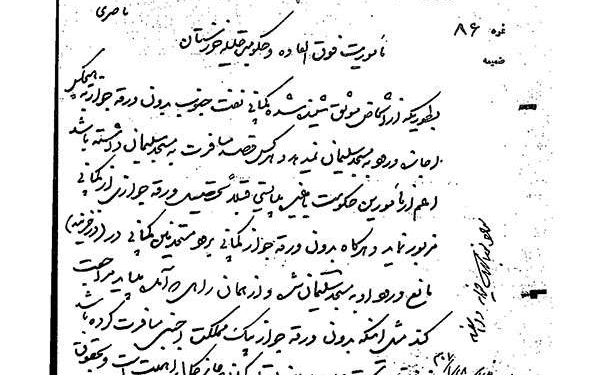 ناصری
نمره ۸۶
ضمیمه
مأموریت فوق العاده و حکومت جلیله خوزستان
بطوریکه از اشخاص موثق شنیده شده کمپانی نفت جنوب بدون ورقه جواز به هیچکس
اجازه ورود به مسجد سلیمان نمیدهد و هر کس قصد مسافرت به مسجد سلیمان داشته باشد
اعم از مأمورین حکومت یا غیره بایستی قبلاً تحصیل ورقه جوازی از کمپانی
مزبور نماید و هر گاه بدون ورقه جواز کمپانی برود مستحفظین کمپانی در (درخزینه)
مانع ورود او به مسجد سلیمان شده و از همان راهی که آمده باید مراجعت
کند مثل اینکه بدون ورقه جواز بیک مملکت اجنبی مسافرت کرده باشد
اهمیت است و بحقوق